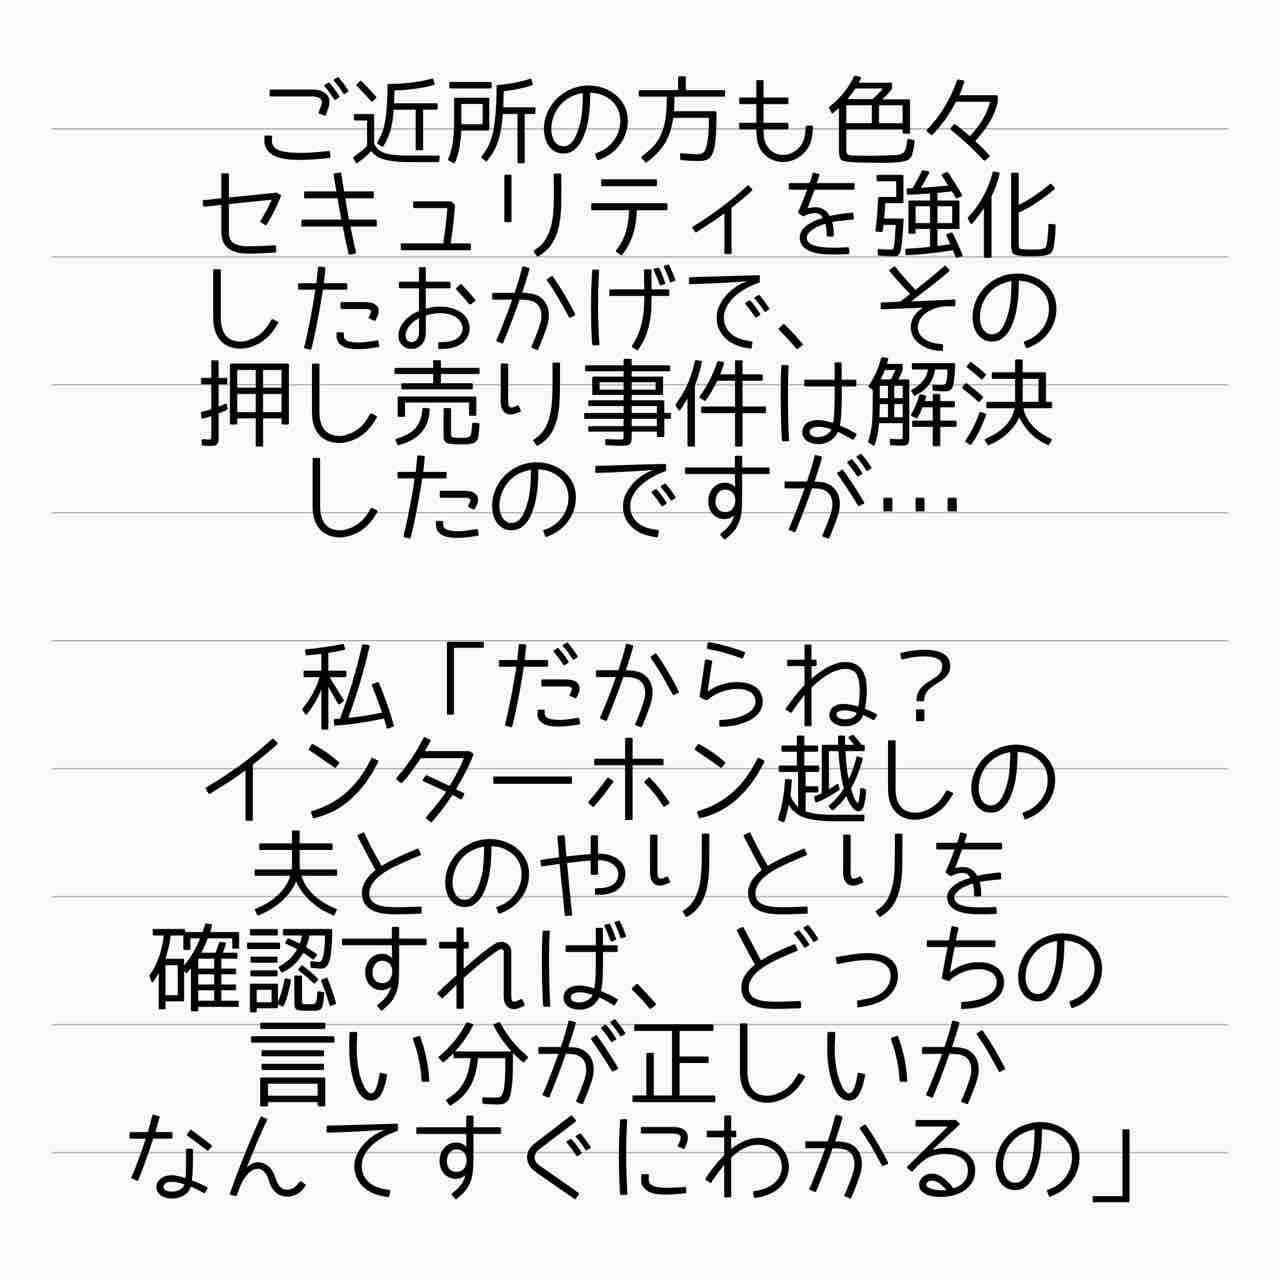 ご近所の方も色々
セキュリティを強化
したおかげで、その
押し売り事件は解決
したのですが…
私「だからね？
インターホン越しの
夫とのやりとりを
確認すれば、どっちの
言い分が正しいか
なんてすぐにわかるの」